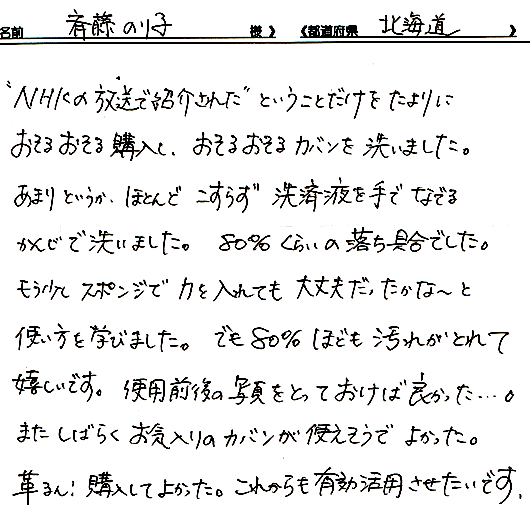 名前 斉藤 のり子 様 》 《都道府県 北海道 》
"NHKの放送で紹介された"ということだけをたよりに
おそるおそる購入し、おそるおそるカバンを洗いました。
あまりというか、ほとんど こすらず 洗済液を手でなでる
かんじで洗いました。 80%くらいの落ち具合でした。
もう少しスポンジで力を入れても大丈夫だったかな〜と
使い方を学びました。でも80%ほども汚れがとれて
嬉しいです。使用前後の写真をとっておけば良かった…。
またしばらくお気入りのカバンが使えそうでよかった。
革るん!購入してよかった。これからも有効活用させたいです。